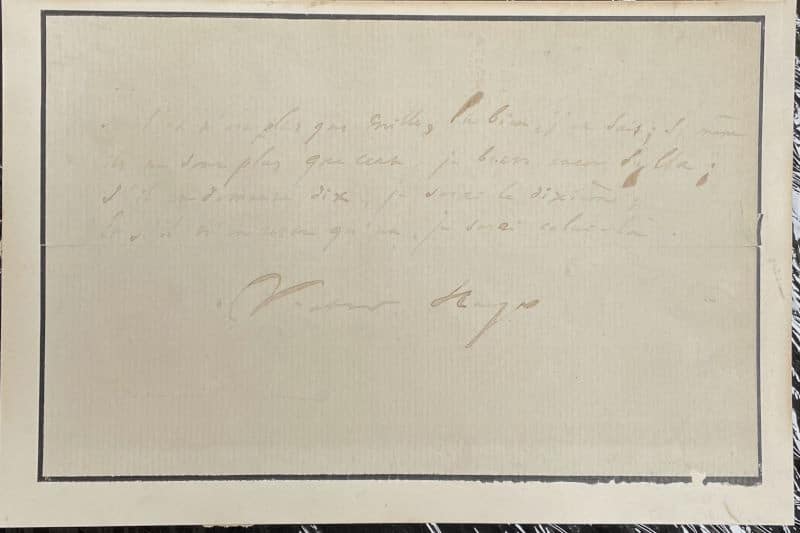 n'est plus que mille, eh bien, j'en suis ; Si même
ils ne sont plus que cent, je brave encor Sylla ;
S'il en demeure dix, je serai le dixième ;
Et s'il n'en reste qu'un, je serai celui-là.
Victor Hugo